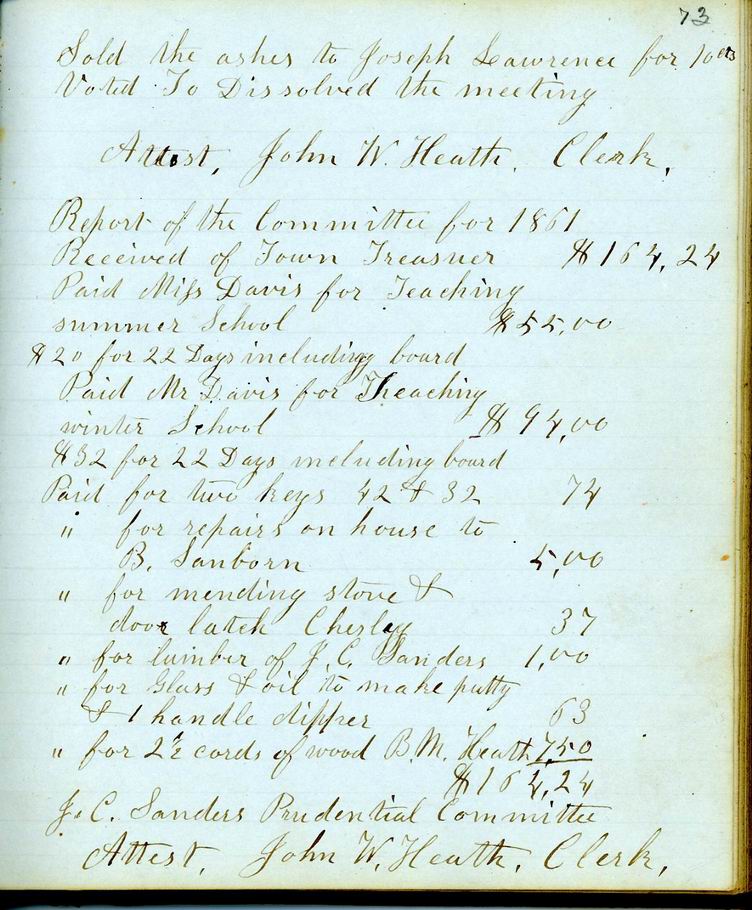 73
Sold the ashes to Joseph Lawrence for 10 cts
Voted To Dissolved the meeting
Attest, John W. Heath. Clerk.
Report of the Committee for 1861
Received of Town Treasurer $164,24
Paid Miss Davis for Teaching
summer School $55,00
$20 for 22 Days including board
Paid Mr Davis for Theaching
winter School $94,00
$32 for 22 Days including board
Paid for two keys 42 & 32 74
" for repairs on house to
B. Sanborn 5,00
" for mending stove &
door latch Chesley 37
" for lumber of J. C. Sanders 1,00
" for Glass & oil to make putty
& 1 handle dipper 63
" for 2 1/2 cords of wood B. M. Heath 7,50
$164,24
J. C. Sanders Prudential Committee
Attest, John W. Heath, Clerk,